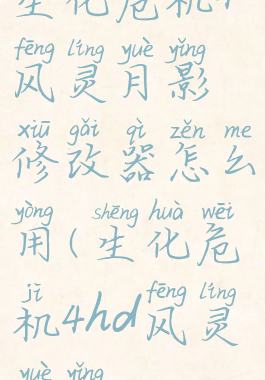 生化危机
fēng líng yuè yǐng
风灵月影
xiū gǎi qì zěn me
修改器怎么
yòng shēng huà wēi
用(生化危
jī fēng líng
机4hd风灵
yuè yǐng